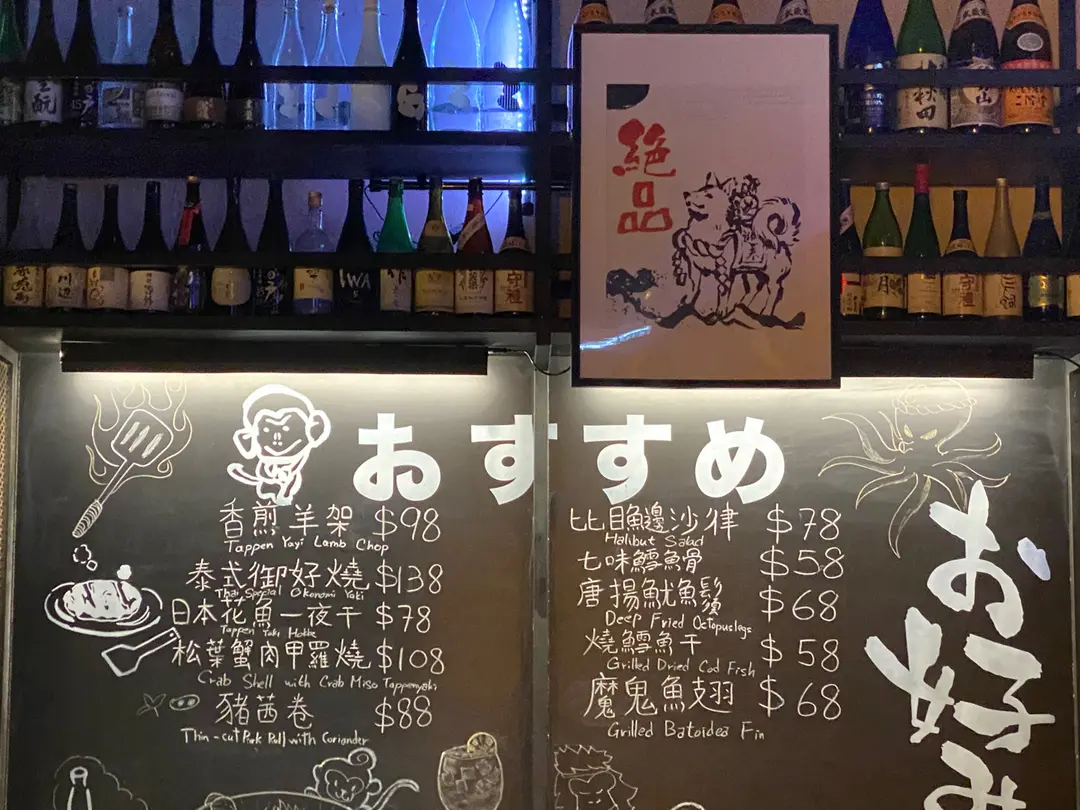 絶品
IWA
守禮
守禮
おすすめ
香煎羊架 $98
Tappen Yayi Lamb Chop
泰式御好燒 $138
Thai Special Okonomi Yaki
日本花魚一夜干 $78
Tappen Yaki Hokke
松葉蟹肉甲羅燒 $108
Crab Shell with Crab Miso Tappenyaki
豬茜卷 $88
Thin-cut Pork Roll with Coriander
比目魚邊沙律 $78
Halibut Salad
七味鱈魚骨 $58
唐揚魷魚鬚 $68
Deep Fried Octopuslegs
燒鱈魚干 $58
Grilled Dried Cod Fish
魔鬼魚翅 $68
Grilled Batoidea Fin
お好み